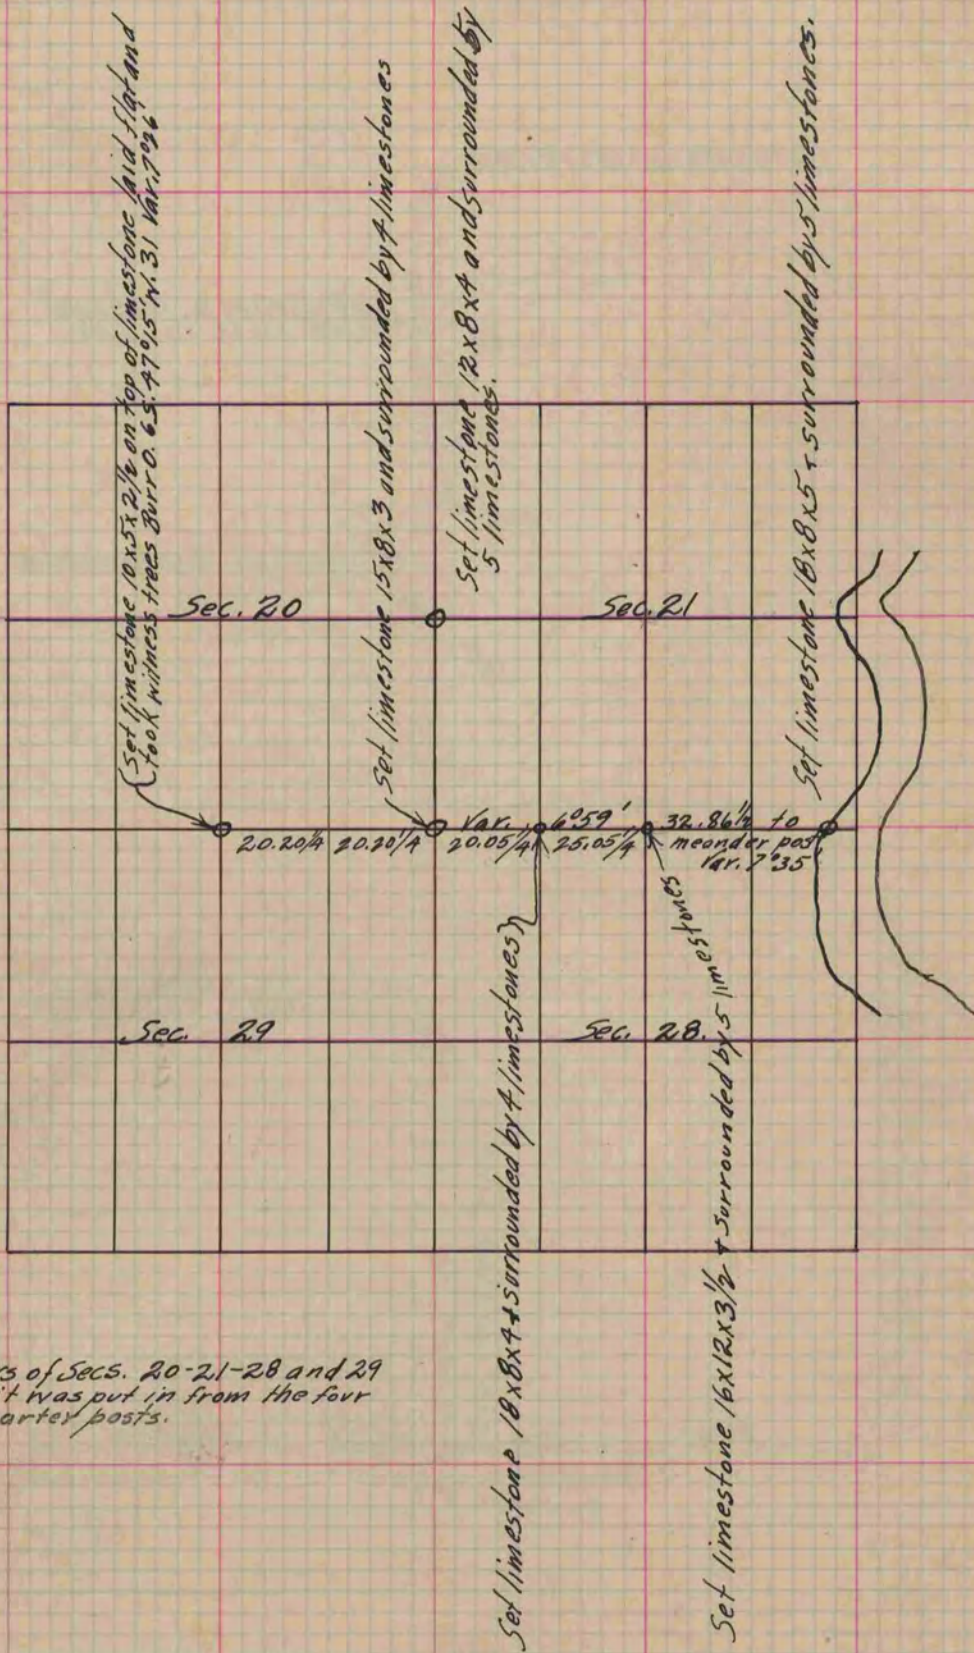 Set limestone 10x5x2 1/2 on top of limestone laid flat and
took witness trees Burr O. 6 S. 47°15' W. 31 Var. 7°26'
Set limestone 15x8x3 and surrounded by 4 limestones
Set limestone 12x8x4 and surrounded by
5 limestones.
Set limestone 18x8x5 + surrounded by 5 limestones.
Sec. 20
Sec. 21
20.20 1/4
20.20 1/4
Var. 6°59'
20.05 1/4
25.05 1/4
32.86 1/2 to
meander post
Var. 7°35
Sec. 29
Sec. 28.
Set limestone 18x8x4 + surrounded by 4 limestones
Set limestone 16x12x3 1/2 + surrounded by 5 limestones
of Secs. 20-21-28 and 29
it was put in from the four
posts.